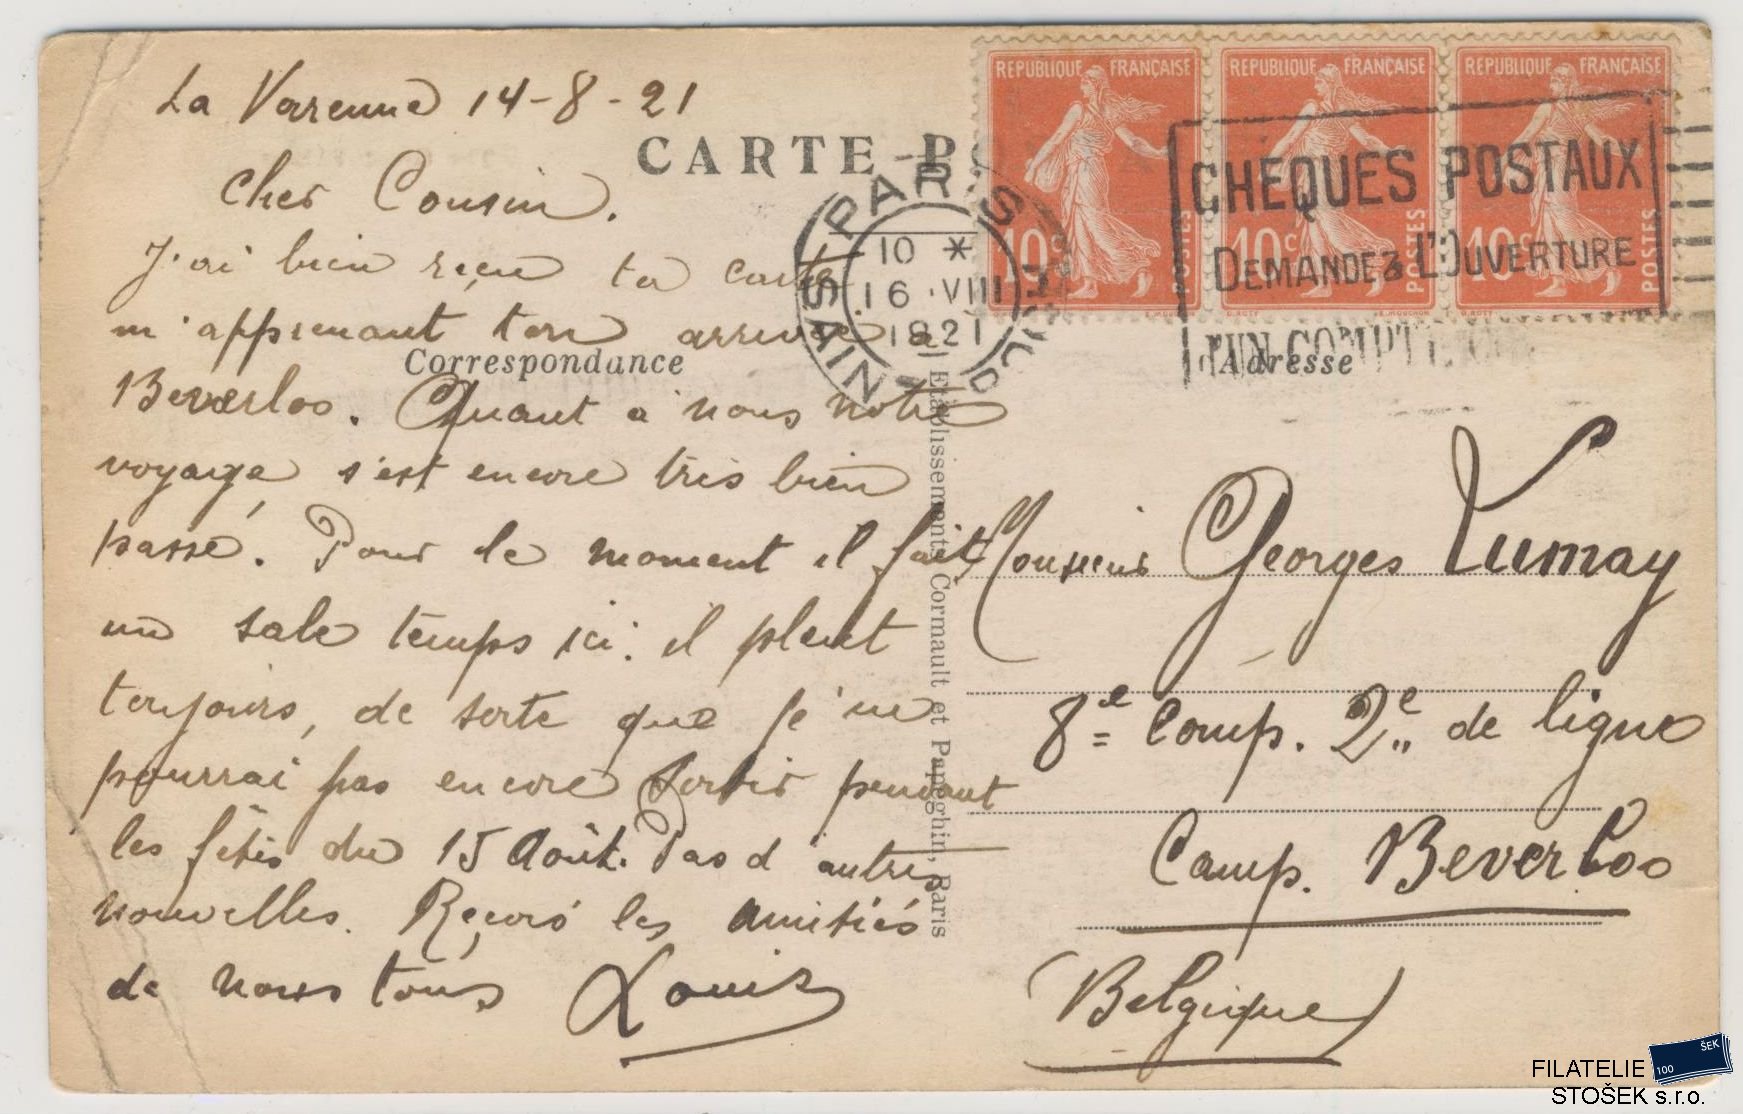 La Varenne 14-8-21
Cher Cousin.
J'ai bien reçu ta carte
m'apprenant ton arrivée à
Beverloo. Quant à nous notre
voyage s'est encore très bien
passé. Pour le moment il fait
un sale temps ici: il pleut
toujours, de sorte que je ne
pourrai pas encore sortir pendant
les fêtes du 15 Août. Pas d'autres
nouvelles. Reçois les amitiés
de nous tous Louis
CARTE P
Correspondance
Adresse
Etablissements Cormault et Papeghin, Paris
REPUBLIQUE FRANÇAISE
10c POSTES
REPUBLIQUE FRANÇAISE
10c POSTES
REPUBLIQUE FRANÇAISE
10c POSTES
PARIS
10 *
16 · VIII
1921
CHEQUES POSTAUX
DEMANDEZ L'OUVERTURE
D'UN COMPTE
Monsieur Georges
8e Comp. 2e de ligne
Camp. Beverloo
(Belgique)
ŠEK
100
FILATELIE
STOŠEK s.r.o.